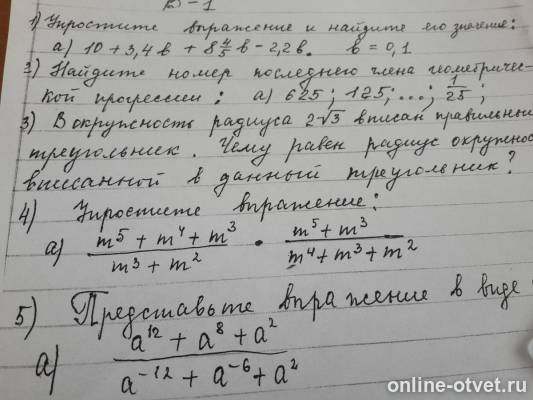 1) Упростите выражение и найдите его значение:
а) 10 + 3,4в + 8 4/5 в - 2,2в. в = 0,1
2) Найдите номер последнего члена геометричес-
кой прогрессии: а) 625; 125; ...; 1/25;
3) В окружность радиуса 2√3 вписан правильный
треугольник. Чему равен радиус окружнос
вписанной в данный треугольник?
4) Упростите выражение:
а) (m^5 + m^4 + m^3)/(m^3 + m^2) • (m^5 + m^3)/(m^4 + m^3 + m^2)
5) Представьте выражение в виде
а) (a^12 + a^8 + a^2)/(a^-12 + a^-6 + a^2)
online-otvet.ru